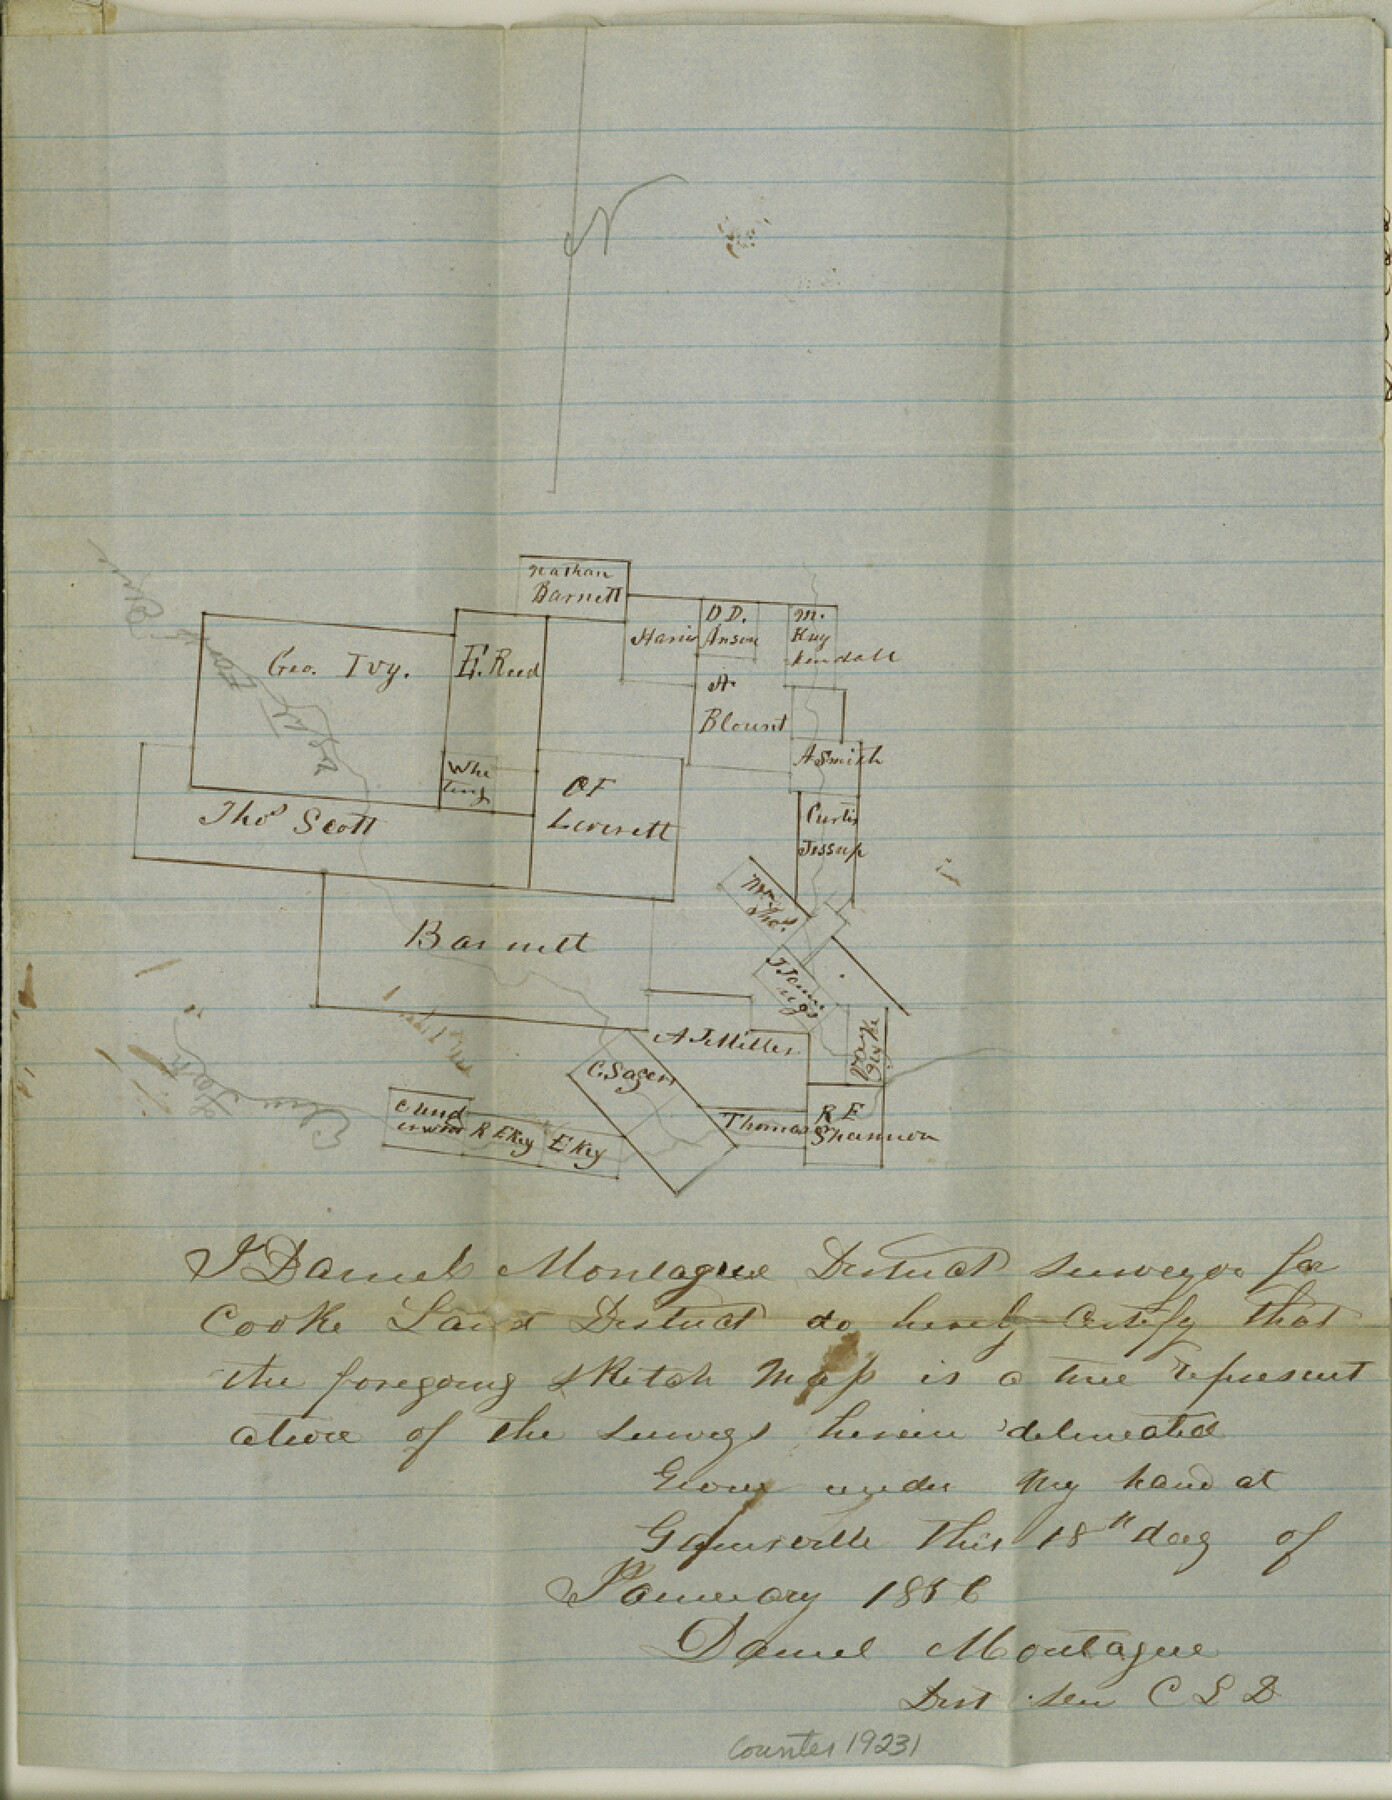 N
Nathan
Barnett
Geo. Ivy.
E. Reed
Harris
D D.
Anson
M.
Kuy
kendall
A
Blount
Whe
ting
O F
Leverett
A Smith
Curtis
Jessup
Thos Scott
Wm
Thos.
Barnett
J Jenni
ngs
A J Miller
C. Sagers
C Und
erwood
R E Key
E Key
Thomas
R E
Shannon
Elm Fork
Elm
I Daniel Montague District surveyor for
Cooke Land District do hereby Certify that
the foregoing sketch map is a true represent
ative of the surveys herein delineated
Given under my hand at
Gainesville this 18th day of
January 1856
Daniel Montague
Dist Sur C L D
Counter 19231